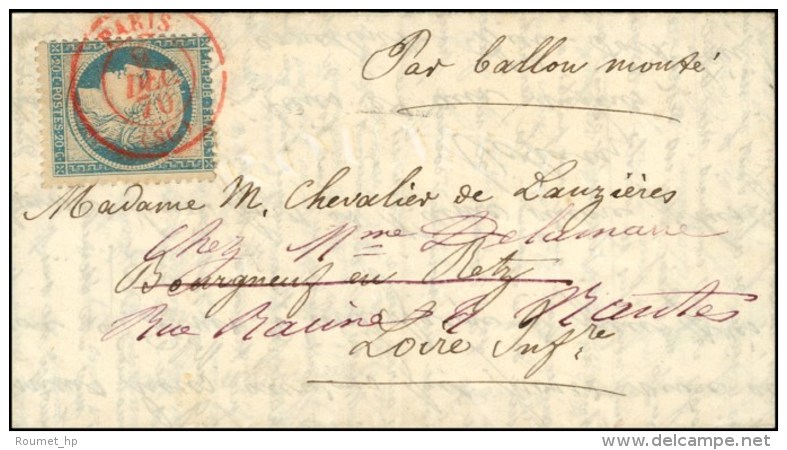 PARIS
DEC
70
(SC)
POSTES
Par ballon monté
Madame M. Chevalier de Lauzières
Chez Mme Delamarre
Bourgneuf en Retz
Rue Racine à Nantes
Loire Infre
Roumet_hp
delcampe.net